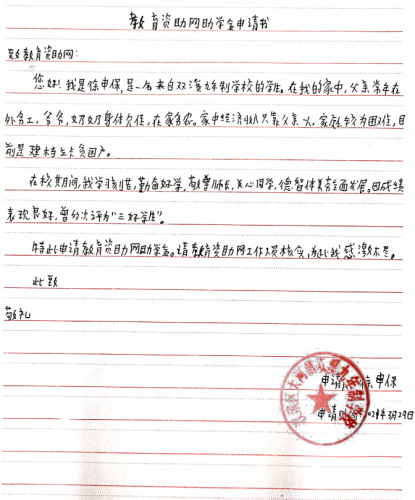 教育资助网助学金申请书
致教育资助网:
您好!我是徐申保,是一名来自双溪九年制学校的学生。在我的家中,父亲常年在
外务工,爷爷,奶奶身体欠佳,在家务农。家中经济收入只靠父亲一人,家庭较为困难,目
前是建档立卡贫困户。
在校期间,我学习刻苦,勤奋好学,敬尊师长,关心同学,德智体美全面发展。因成绩
表现良好,曾多次评为"三好学生"。
特此申请教育资助网助学金。请教育资助网工作人员核实,为此我感激不尽。
此致
敬礼
申请人:徐申保
申请时间:2021年3月29日
九年制学校